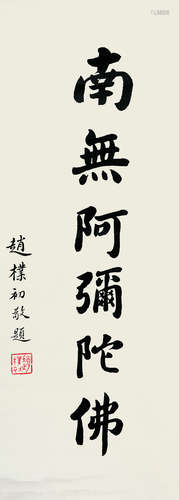 南無阿彌陀佛
趙樸初敬題